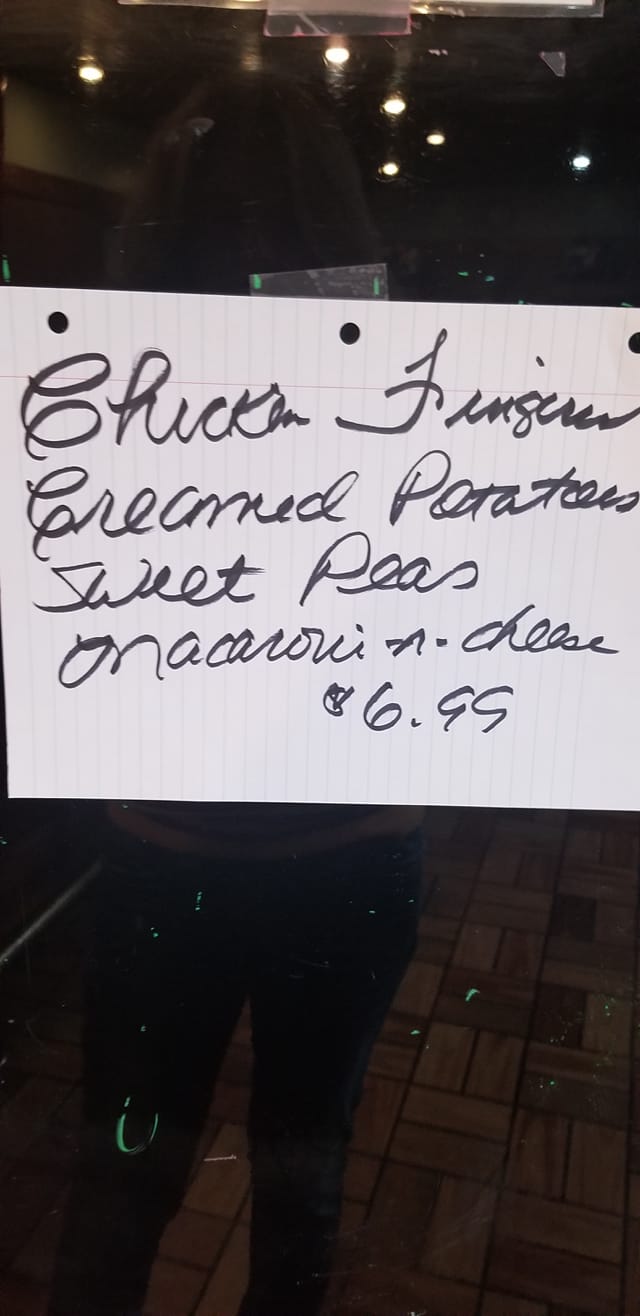 Chicken Fingers
Creamed Potatoes
Sweet Peas
Macaroni-n-cheese
$6.99